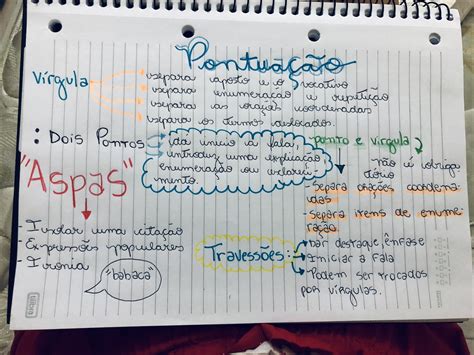 Pontuação
Vírgula
→separa aposto e o vocativo
→separa enumeração e repetição
→separa as orações coordenadas
→separa os termos deslocados.
: Dois Pontos
→dá início a fala
introduz uma explicação
enumeração ou esclareci-
mento.
ponto e vírgula
-não é obriga
tório
-Separa orações coordena-
das
-Separa itens de enume-
ração
"Aspas"
-Isolar uma citação
-Expressões populares
-Ironia
"babaca"
Travessões:
→dar destaque, ênfase
→Iniciar a Fala
→Podem ser trocados
por vírgulas.
tilibra